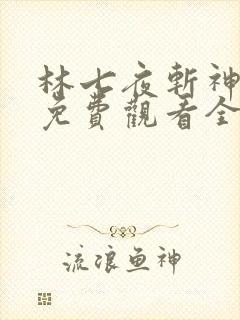 林七夜斬神
免費觀看全
流浪鱼神